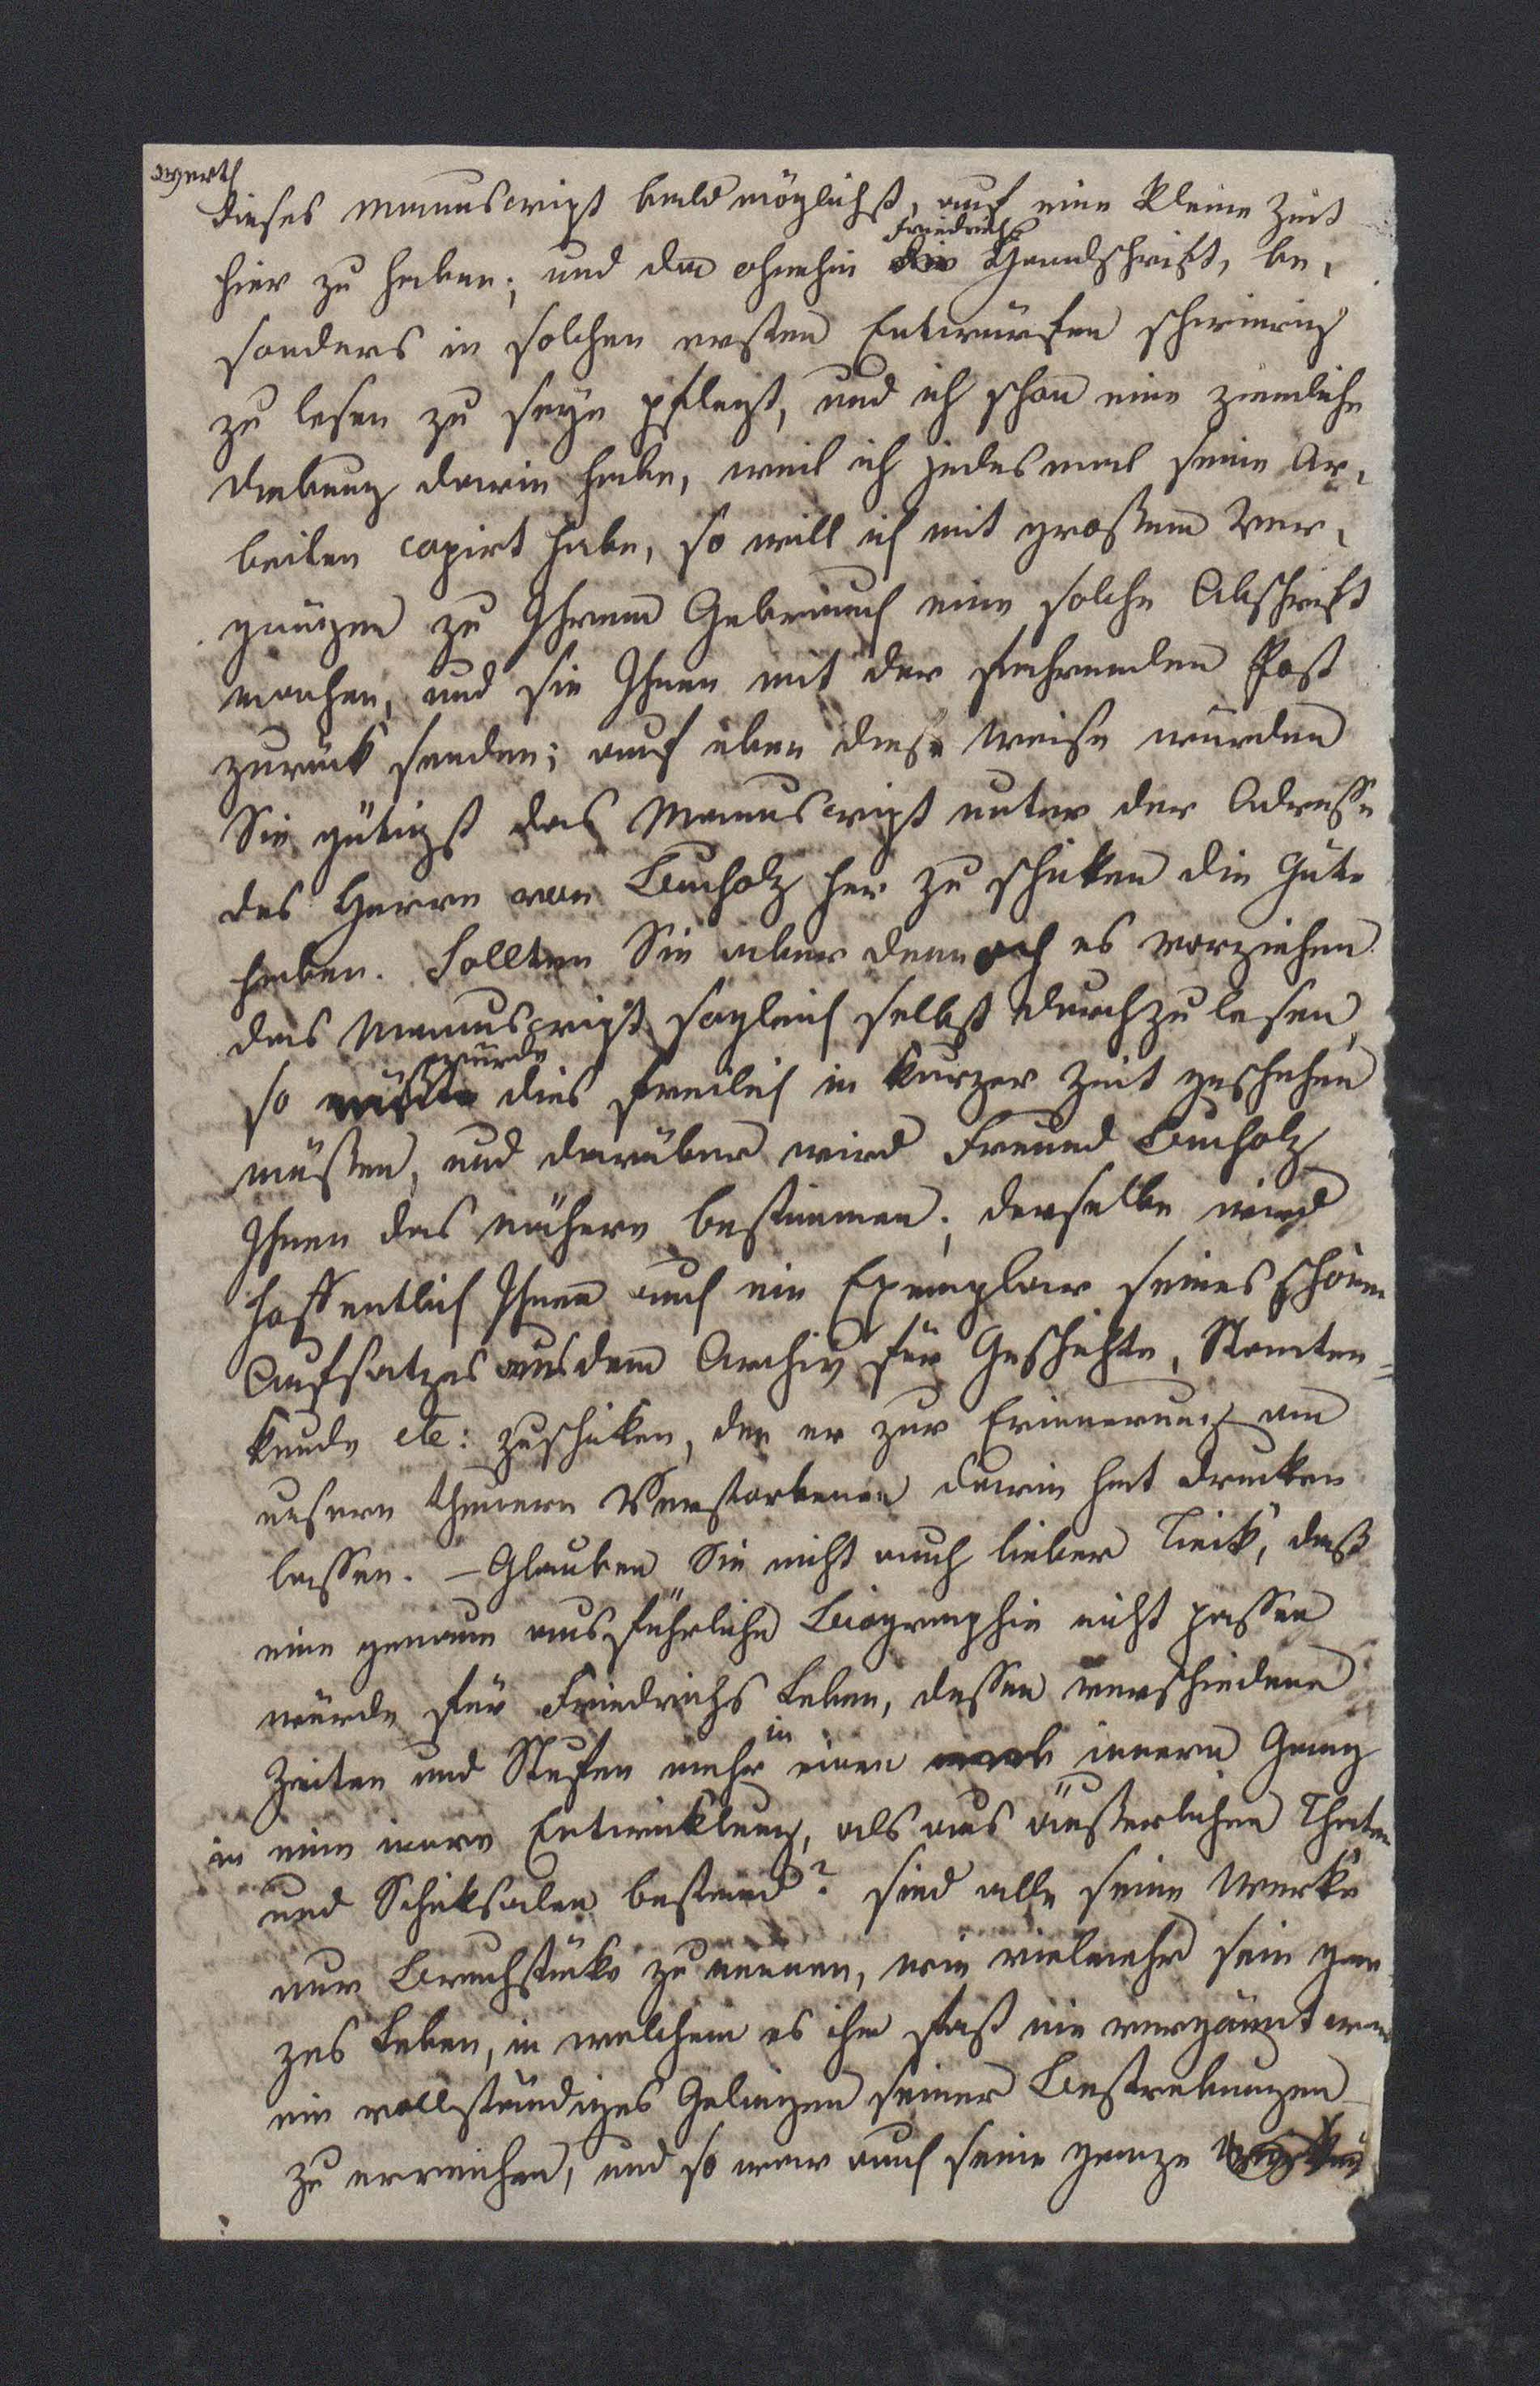 werth
dieses Manuscript baldmöglichst, auf eine kleine Zeit
Friedrichs
hier zu haben; und da ohnehin die Handschrift, be-
sonders in solchen ersten Entwürfen schwierig
zu lesen zu seyn pflegt, und ich schon eine ziemliche
Uebung darin habe, weil ich jedesmal seine Ar-
beiten copirt habe, so will ich mit großem Ver-
gnügen zu Ihrem Gebrauch eine solche Abschrift
machen, und sie Ihnen mit der fahrenden Post
zurück senden; auf eben diese Weise würden
Sie gütigst das Manuscript unter der Adresse
des Herrn von Bucholz her zu schicken die Güte
haben. Sollten Sie aber dennoch es vorziehen
das Manuscript sogleich selbst durchzulesen,
würde
so müßte dies freilich in kurzer Zeit geschehen
müßen, und darüber wird Freund Bucholz
Ihnen das nähere bestimmen; derselbe wird
hoffentlich Ihnen auch ein Exemplar seines schönen
Aufsatzes aus dem Archiv für Geschichte, Staaten=
kunde etc: zuschicken, den er zur Erinnerung an
unsern theuern Verstorbenen darin hat drucken
lassen. – Glauben Sie nicht auch lieber Tieck, daß
eine genaue ausführliche Biographie nicht passen
würde für Friedrichs Leben, dessen verschiedene
in
Zeiten und Stufen mehr einen innern Gang
in eine innere Entwicklung, als aus äußerlichen Thaten
und Schicksalen bestand? sind alle seine Werke
nur Bruchstücke zu nennen, wie vielmehr sein gan-
zes Leben, in welchem es ihm fast nie vergönnt war
ein vollständiges Gelingen seiner Bestrebungen
zu erreichen, und so war auch seine ganze